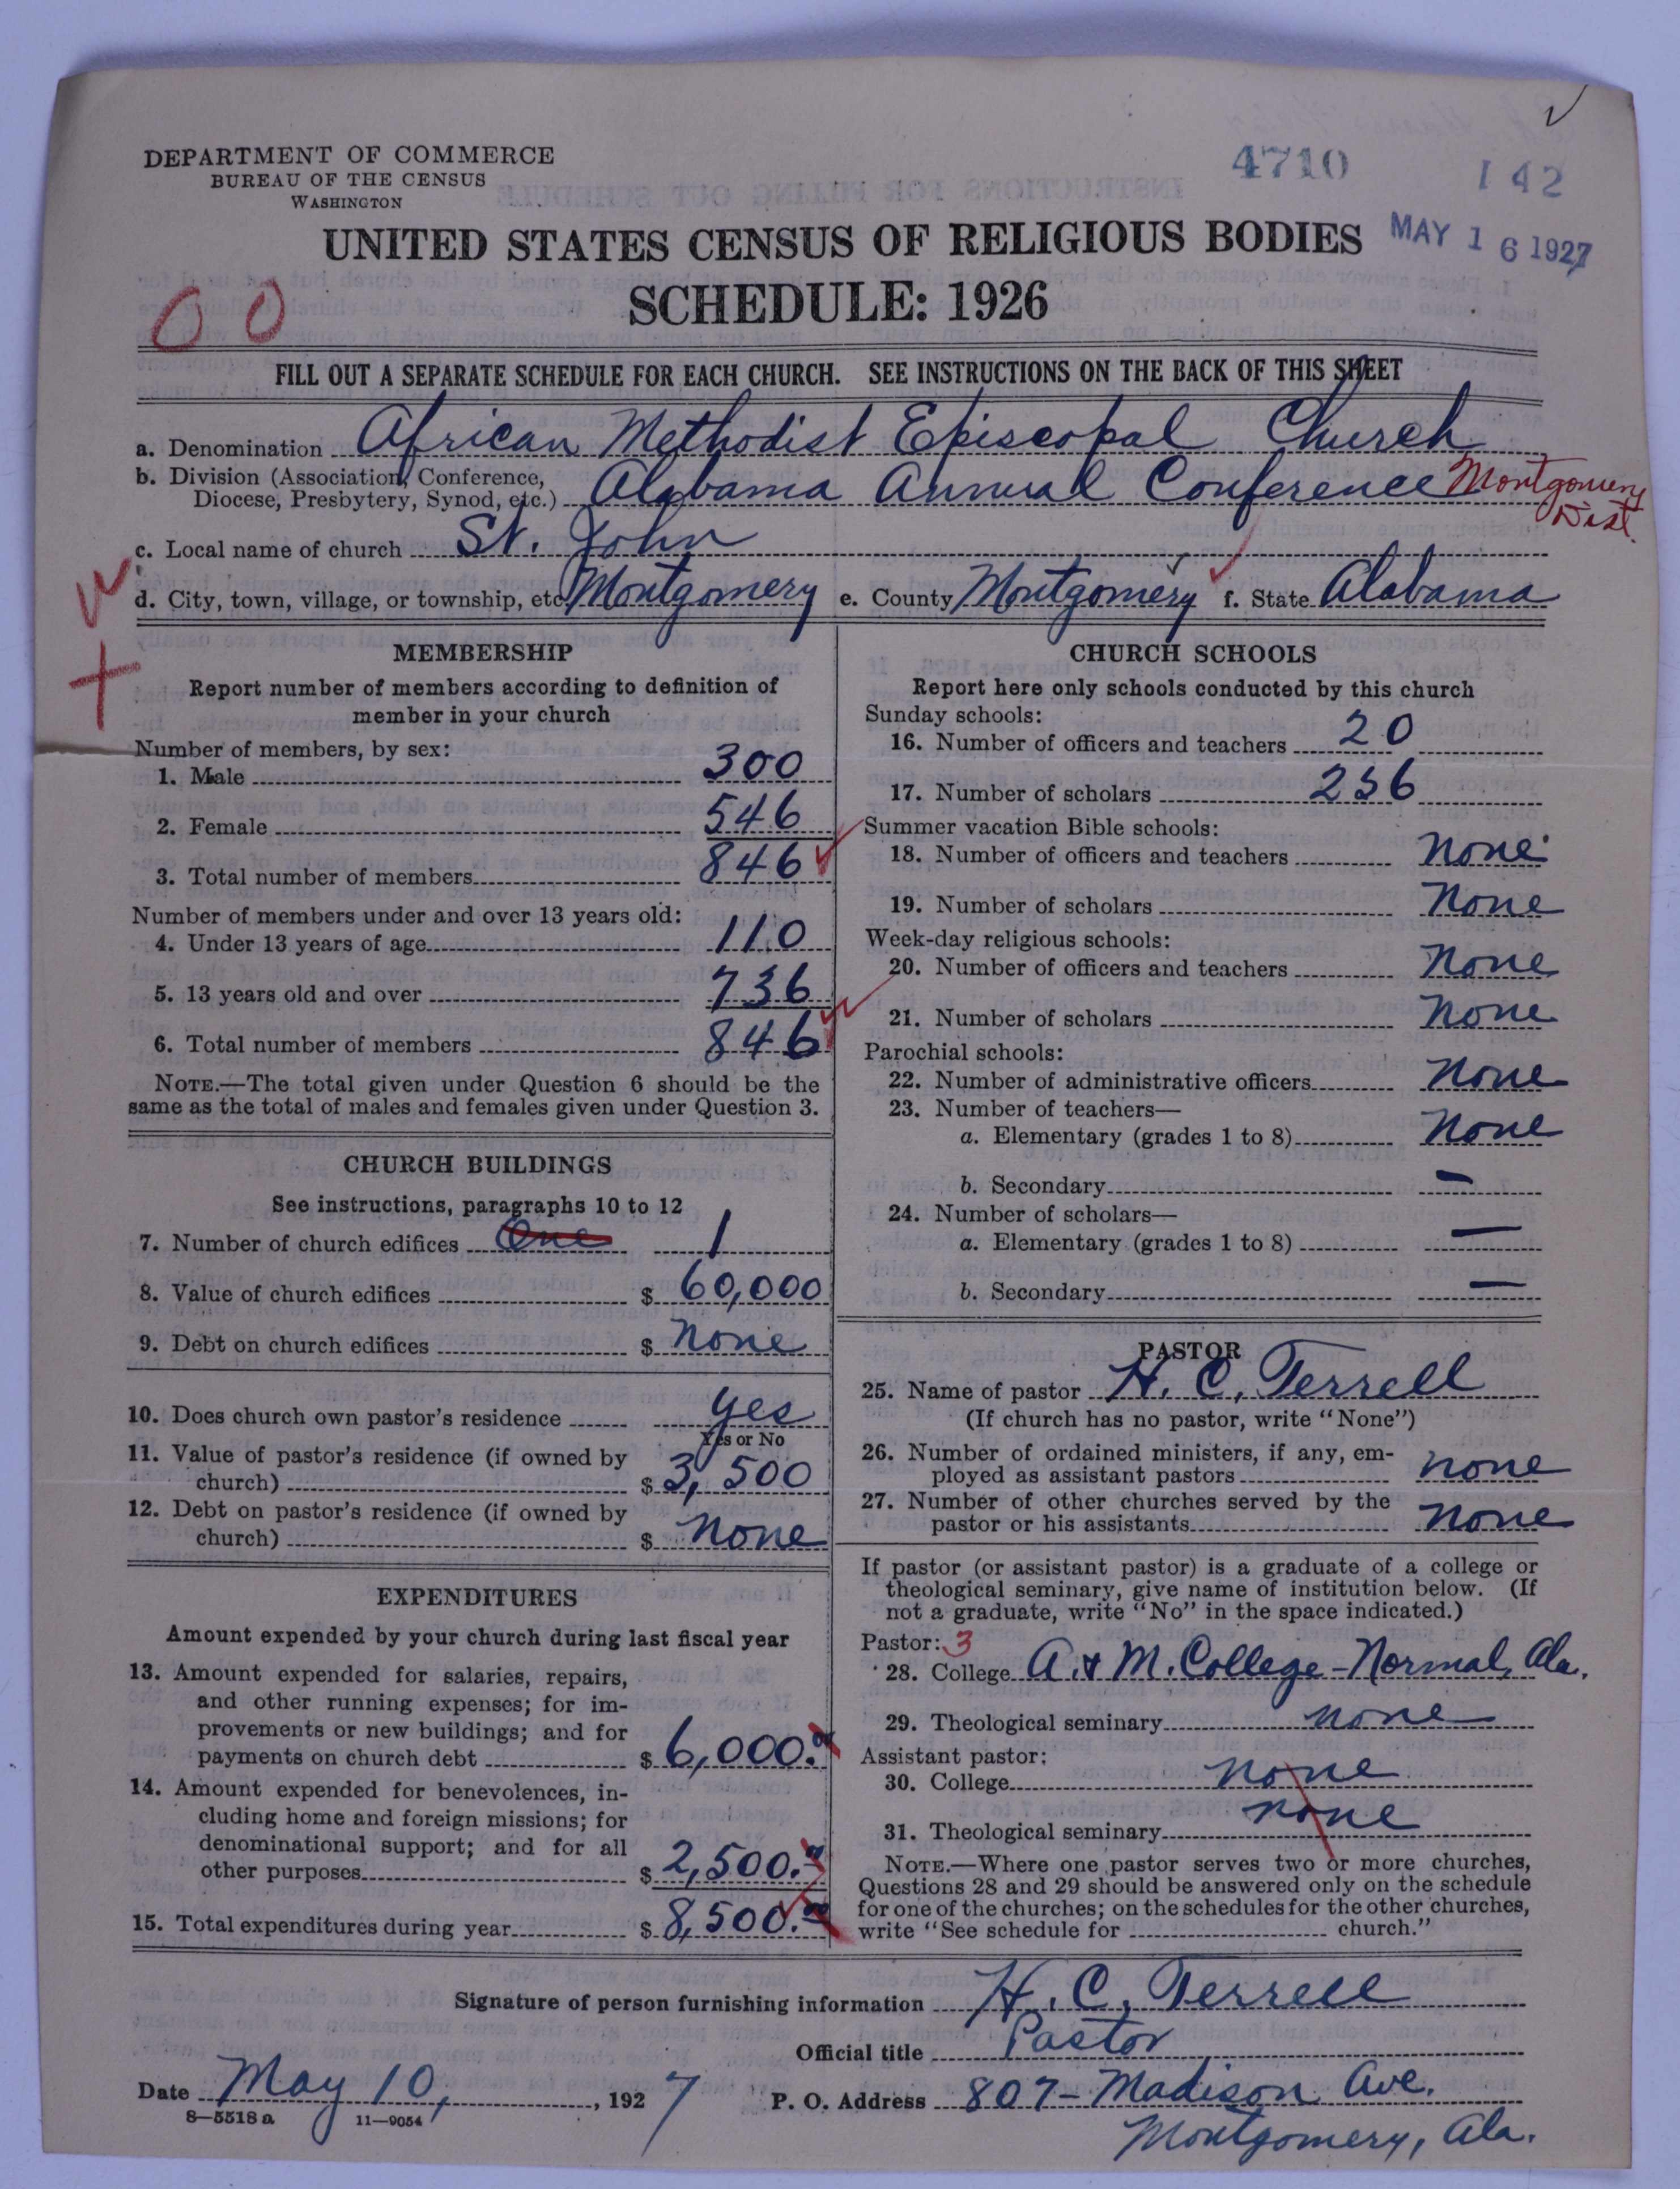 DEPARTMENT OF COMMERCE
BUREAU OF THE CENSUS
WASHINGTON
4710
142
UNITED STATES CENSUS OF RELIGIOUS BODIES
MAY 16 1927
SCHEDULE: 1926
00
FILL OUT A SEPARATE SCHEDULE FOR EACH CHURCH. SEE INSTRUCTIONS ON THE BACK OF THIS SHEET
a. Denomination African Methodist Episcopal Church
b. Division (Association, Conference,
Diocese, Presbytery, Synod, etc.) Alabama Annual Conference Montgomery Dist.
c. Local name of church St. John
d. City, town, village, or township, etc. Montgomery e. County Montgomery f. State Alabama
MEMBERSHIP
Report number of members according to definition of
member in your church
Number of members, by sex:
1. Male 300
2. Female 546
3. Total number of members 846
Number of members under and over 13 years old:
4. Under 13 years of age 110
5. 13 years old and over 736
6. Total number of members 846
NOTE.—The total given under Question 6 should be the
same as the total of males and females given under Question 3.
CHURCH BUILDINGS
See instructions, paragraphs 10 to 12
7. Number of church edifices One 1
8. Value of church edifices $ 60,000
9. Debt on church edifices $ None
10. Does church own pastor's residence Yes
Yes or No
11. Value of pastor's residence (if owned by
church) $ 3,500
12. Debt on pastor's residence (if owned by
church) $ None
EXPENDITURES
Amount expended by your church during last fiscal year
13. Amount expended for salaries, repairs,
and other running expenses; for im-
provements or new buildings; and for
payments on church debt $ 6,000.00
14. Amount expended for benevolences, in-
cluding home and foreign missions; for
denominational support; and for all
other purposes $ 2,500.00
15. Total expenditures during year $ 8,500.00
CHURCH SCHOOLS
Report here only schools conducted by this church
Sunday schools:
16. Number of officers and teachers 20
17. Number of scholars 256
Summer vacation Bible schools:
18. Number of officers and teachers None
19. Number of scholars None
Week-day religious schools:
20. Number of officers and teachers None
21. Number of scholars None
Parochial schools:
22. Number of administrative officers None
23. Number of teachers—
a. Elementary (grades 1 to 8) None
b. Secondary —
24. Number of scholars—
a. Elementary (grades 1 to 8) —
b. Secondary —
PASTOR
25. Name of pastor H. C. Terrell
(If church has no pastor, write "None")
26. Number of ordained ministers, if any, em-
ployed as assistant pastors none
27. Number of other churches served by the
pastor or his assistants none
If pastor (or assistant pastor) is a graduate of a college or
theological seminary, give name of institution below. (If
not a graduate, write "No" in the space indicated.)
Pastor: 3
28. College A. & M. College - Normal, Ala.
29. Theological seminary none
Assistant pastor:
30. College none
31. Theological seminary none
NOTE.—Where one pastor serves two or more churches,
Questions 28 and 29 should be answered only on the schedule
for one of the churches; on the schedules for the other churches,
write "See schedule for church."
Signature of person furnishing information H. C. Terrell
Official title Pastor
Date May 10, 1927 P. O. Address 807- Madison Ave.
8—5518 a 11—9054
Montgomery, Ala.